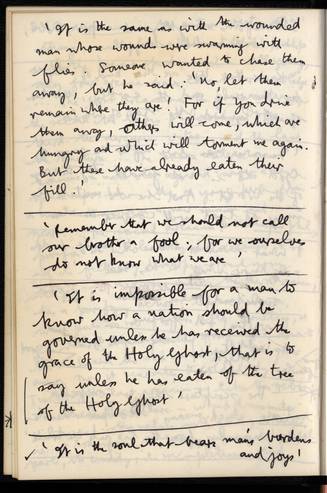 'It is the same as with the wounded
man whose wounds were swarming with
flies. Someone wanted to chase them
away, but he said: 'No, let them
remain where they are! For if you drive
them away, others will come, which are
hungry and which will torment me again.
But these have already eaten their
fill!'
'Remember that we should not call
our brother a fool, for we ourselves
do not know what we are'
'It is impossible for a man to
know how a nation should be
governed unless he has received the
grace of the Holy Ghost, that is to
say unless he has eaten of the tree
of the Holy Ghost'
'It is the soul that bears man's burdens
and joys'